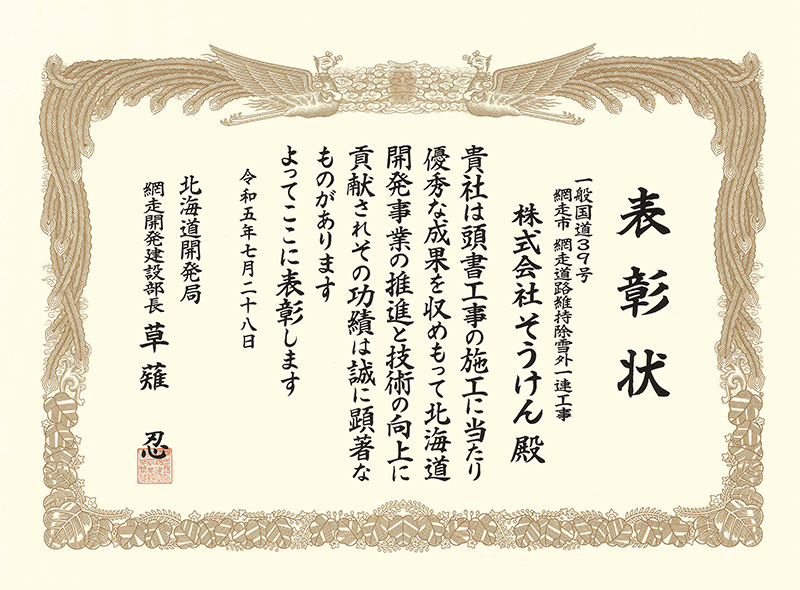 表彰状
一般国道39号
網走市 網走道路維持除雪外一連工事
株式会社そうけん 殿
貴社は頭書工事の施工に当たり
優秀な成果を収めもって北海道
開発事業の推進と技術の向上に
貢献されその功績は誠に顕著な
ものがあります
よってここに表彰します
令和五年七月二十八日
北海道開発局
網走開発建設部長 草薙 忍